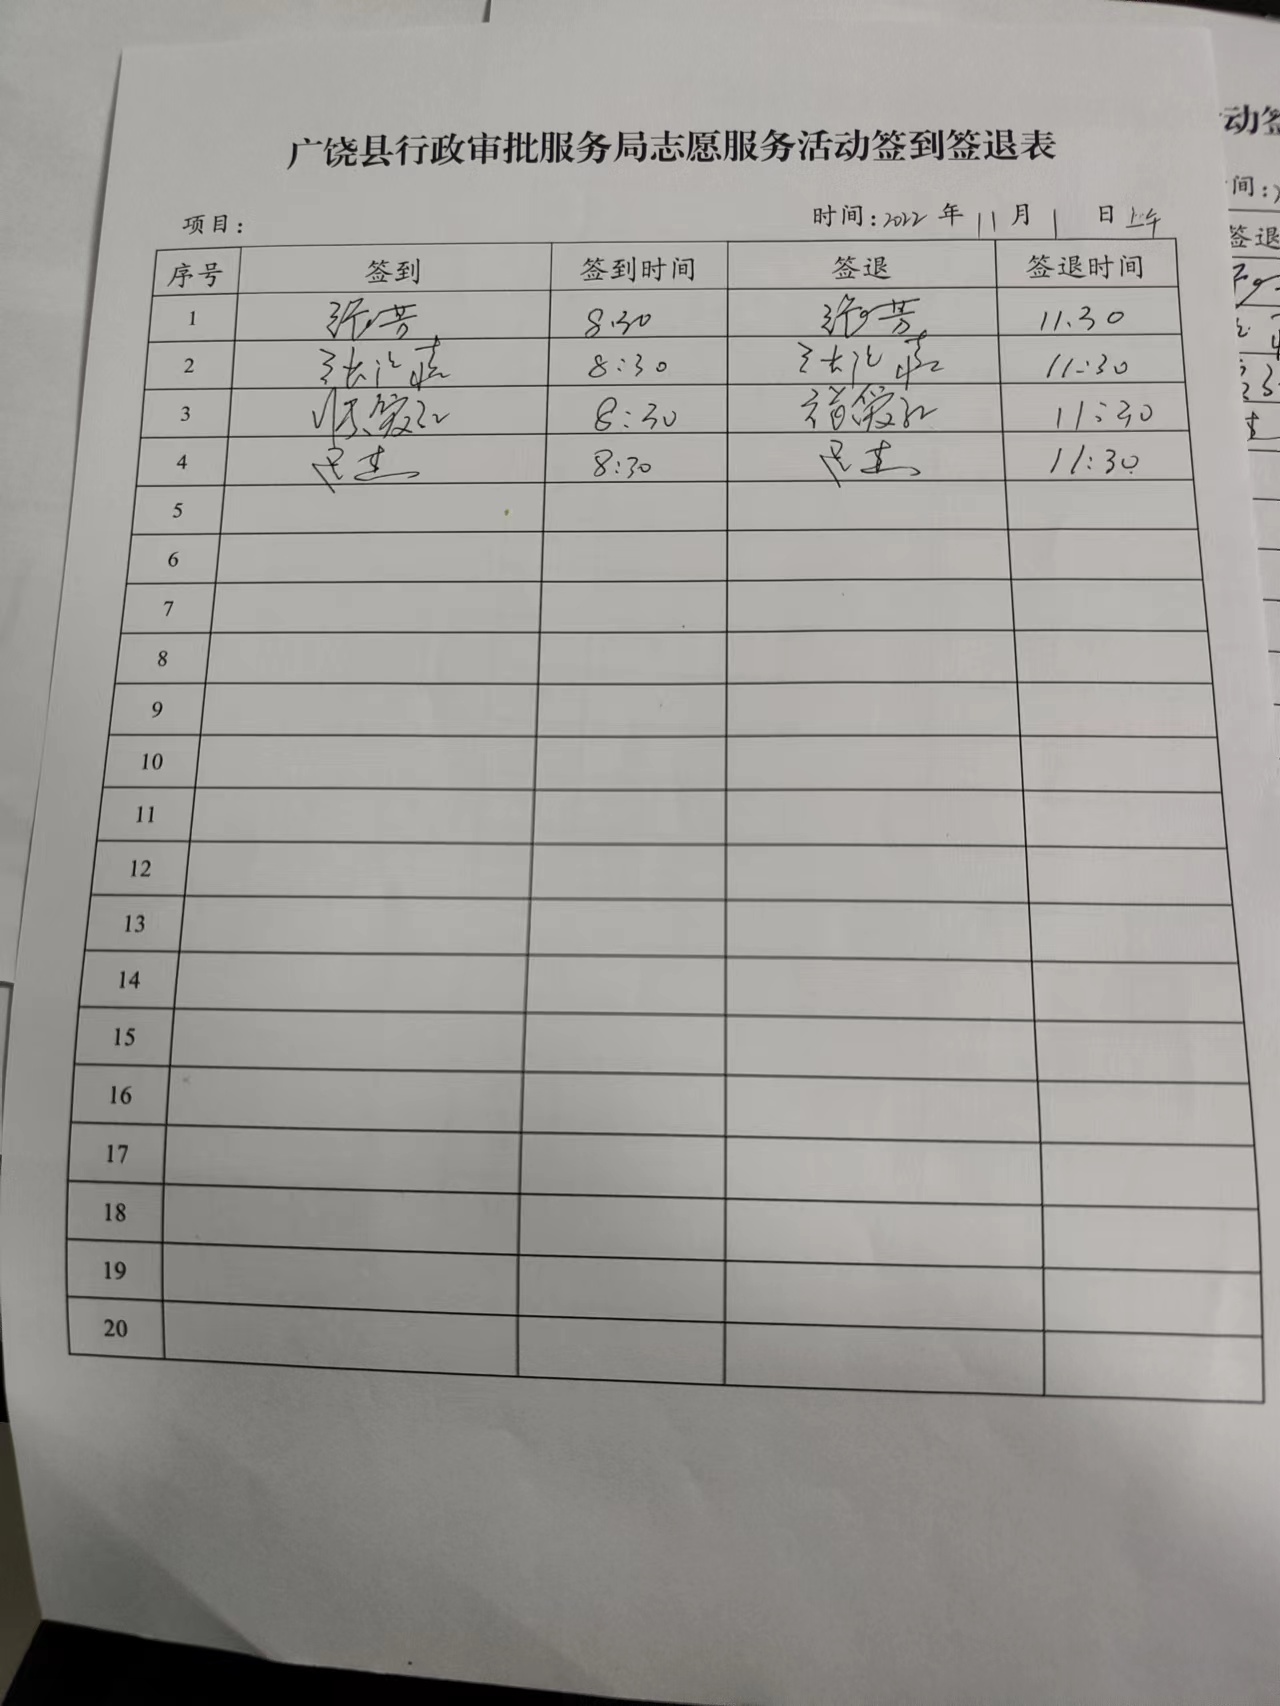 广饶县行政审批服务局志愿服务活动签到签退表
项目： 时间：2022 年 11 月 1 日 上午
序号 签到 签到时间 签退 签退时间
1 8.30 11.30
2 8:30 11:30
3 8:30 11:30
4 8:30 11:30
5
6
7
8
9
10
11
12
13
14
15
16
17
18
19
20
动签
间：
签退